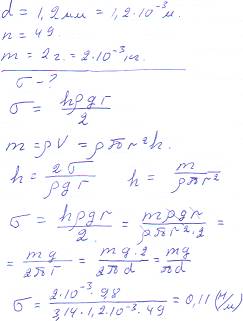 d = 1,2 мм = 1,2·10⁻³ м.
n = 49.
m = 2 г. = 2·10⁻³ кг.
σ - ?
σ = hρgr/2
m = ρV = ρπr²h.
h = 2σ/ρgr h = m/ρπr²
σ = hρgr/2 = mρgr/ρπr²·2 =
= mg/2πr = mg·2/2πd = mg/πd
σ = 2·10⁻³·9,8/3,14·1,2·10⁻³·49 = 0,11 (Н/м)